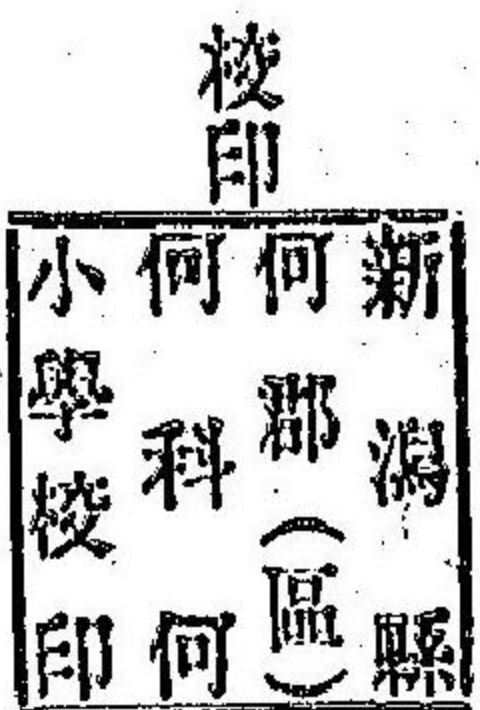 校印
新潟縣
何郡（區）
何科何
小學校印